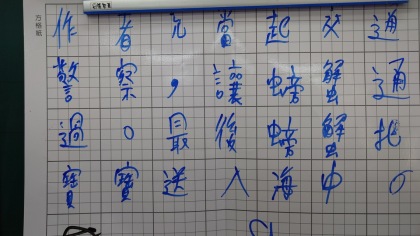 方格紙
作者充當起交通
警察,讓螃蟹通
過。最後螃蟹把
寶寶送入海中。